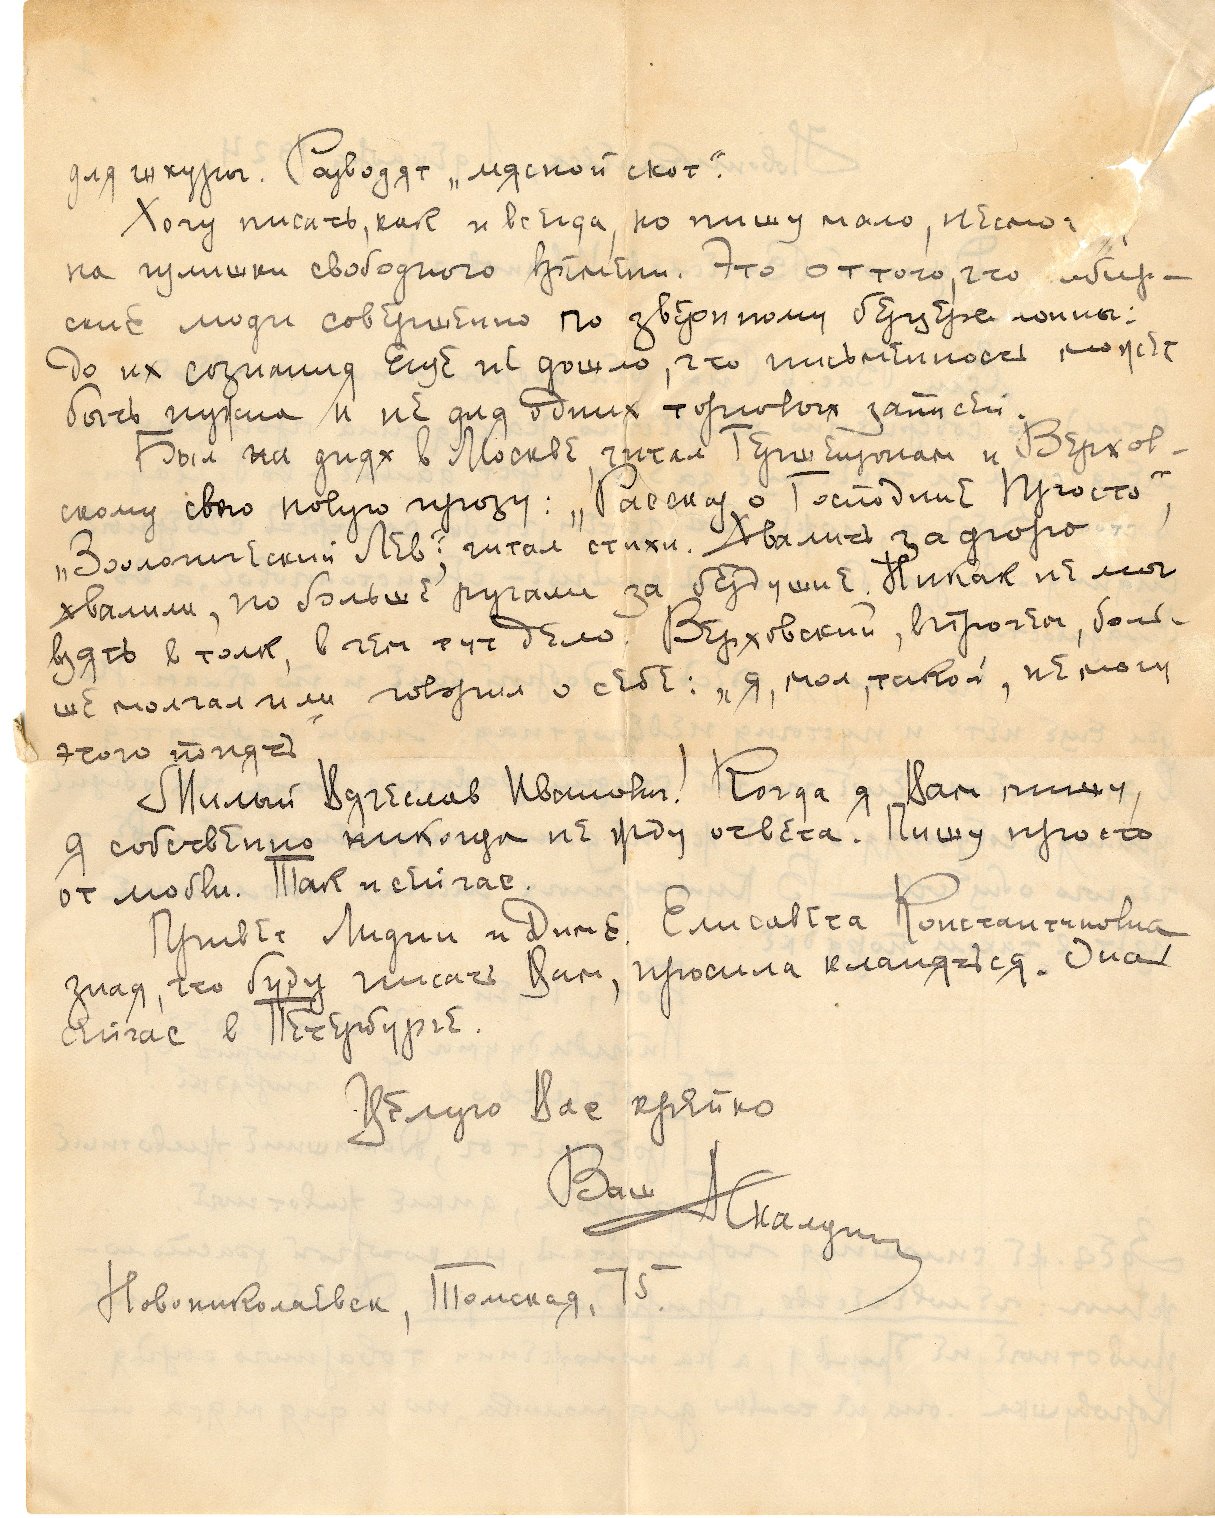 для шкуры. Разводят „мясной скот“.
Хочу писать, как и всегда, но пишу мало,
на излишки свободного времени. Это оттого, что
ские люди совершенно по звериному безцеремонны:
до их сознания еще не дошло, что письменность может
быть нужна и не для одних торговых записей.
Был на днях в Москве, читал Гершензонам и Верхов-
скому свою новую прозу: „Рассказ о Господине Просто“,
„Зоологический Лев“, читал стихи. Хвалить за форму
хвалили, но больше ругали за бездушие. Никак не мог
взять в толк, в чем тут дело. Верховский, впрочем, боль-
ше молчал или говорил о себе: „я, мол, такой, не могу
этого понять“
Милый Вячеслав Иванович! Когда я Вам пишу,
я собственно никогда не жду ответа. Пишу просто
от любви. Так и сейчас.
Привет Лидии и Диме. Елисавета Константиновна
зная, что буду писать Вам, просила кланяться. Она
сейчас в Петербурге.
Целую Вас крепко
Ваш АСкалдин
Новониколаевск, Томская, 75.